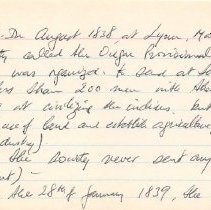 - In August 1838 at Lynn, Ma
called the Oregon Provisional
was organized. to send at
less than 200 men with the
at civilizing the indians, but
use of land and establish agriculture
industry)
the Society never sent any
- the 28th of January 1839, the